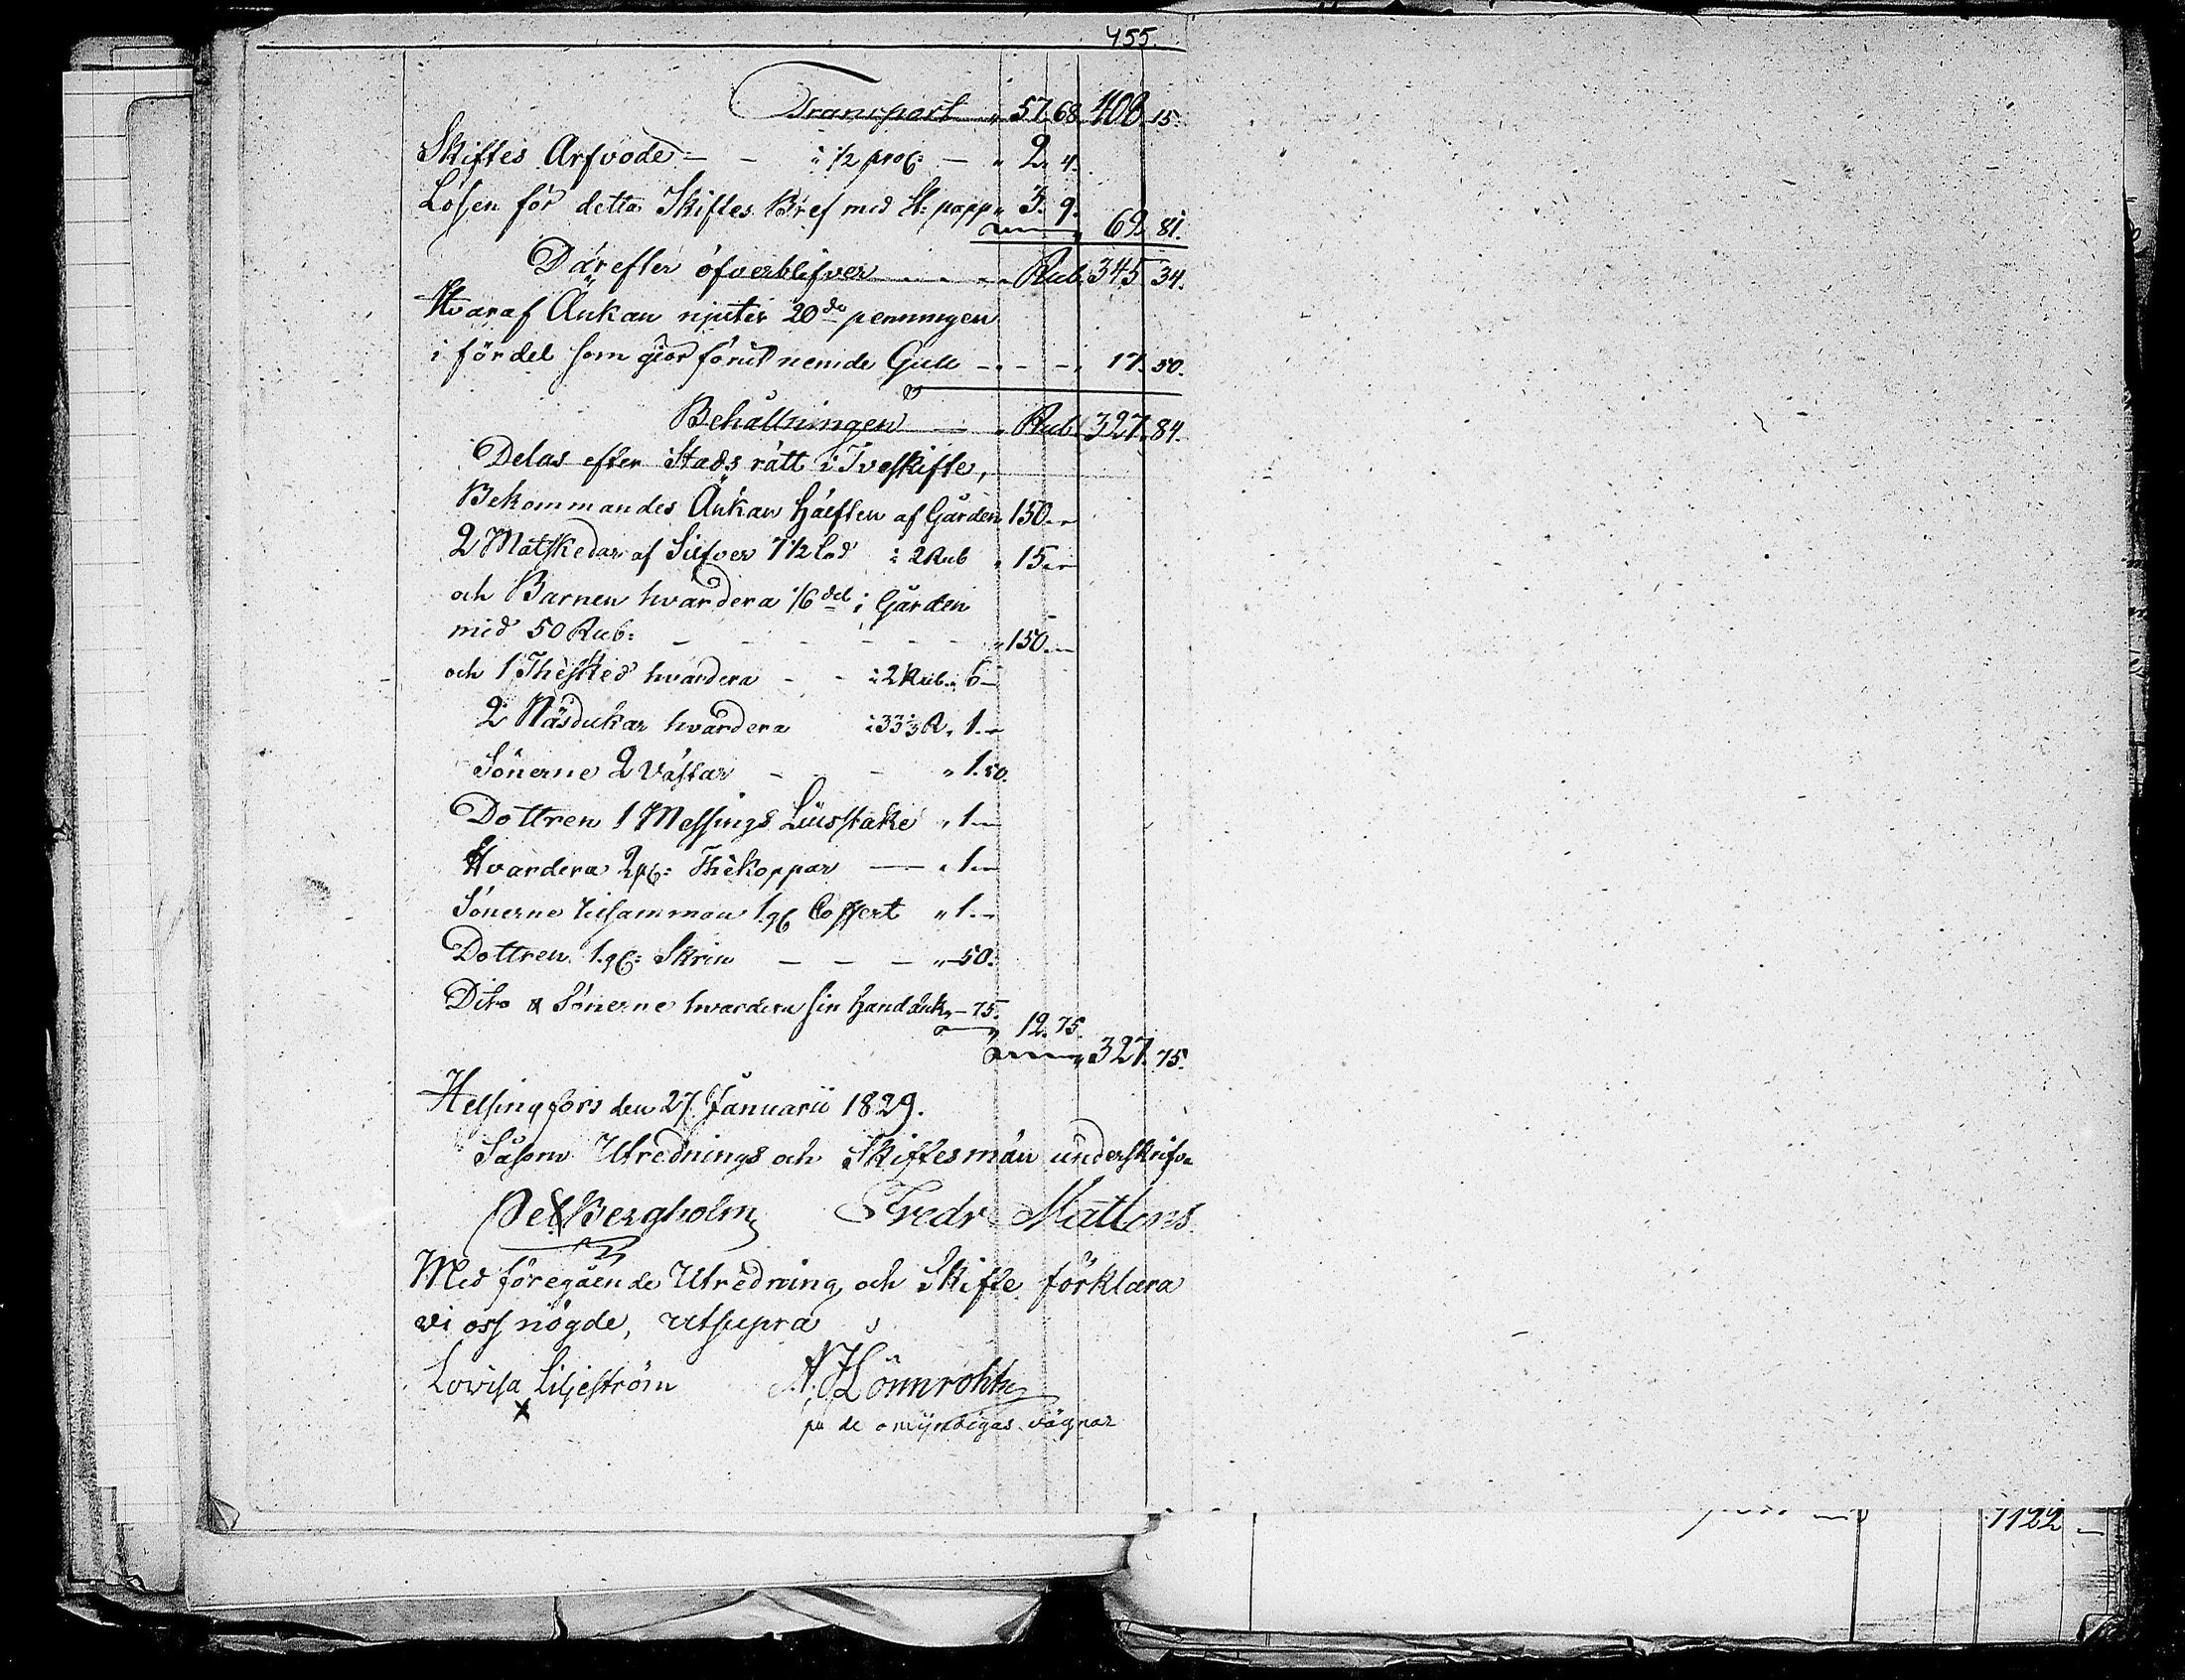 455.
Transport " 57. 68. 408. 15.
Skiftes Arfvode - - à 1/2 proC: - " 2. 4.
Lösen för detta Skiftes Bref med St: papp " 3. 9. 62. 81.
Därefter öfverblifver - - - Rub. 345. 34.
Hvaraf Änkan njuter 20de penningen
i fördel som giör förut nemde Gull - - - 17. 50.
Behållningen - " Rub. 327. 84.
Delas efter Stads rätt i Tveskifte,
Bekommandes Änkan Hälften af Gården 150. -
2 Matskedar af Silfver 7 1/2 lod à 2 Rub " 15. -
och Barnen hvardera 1/6 del i Gården
med 50 Rub: - - - - - " 150. -
och 1 Thesked hvardera - - à 2 Rub. " 6 -
2 Näsdukar hvardera à 33 1/3 R. " 1. -
Sönerne 2 Västar - - - " 1. 50.
Dottren 1 Messings Liusstake " 1. -
Hvardera 2 pC: Thékoppar - " 1. -
Sönerne tilsamman 1 gC Coffert " 1. -
Dottren 1. gC: Skrin - - - " - 50.
Dito & Sönerne hvardera sin Handduk " - 75. " 12. 75.
" 327. 75.
Helsingfors den 27 Januarii 1829.
Såsom Utrednings och Skiftesmän underskrifva
Bergholm Fredr Mattens
Med föregående Utredning och Skifte förklara
vi oss nögde, utsupra
Lovisa Liljeström A. J. Lönnrohth
X
på de omÿndigas vägnar
1122 -